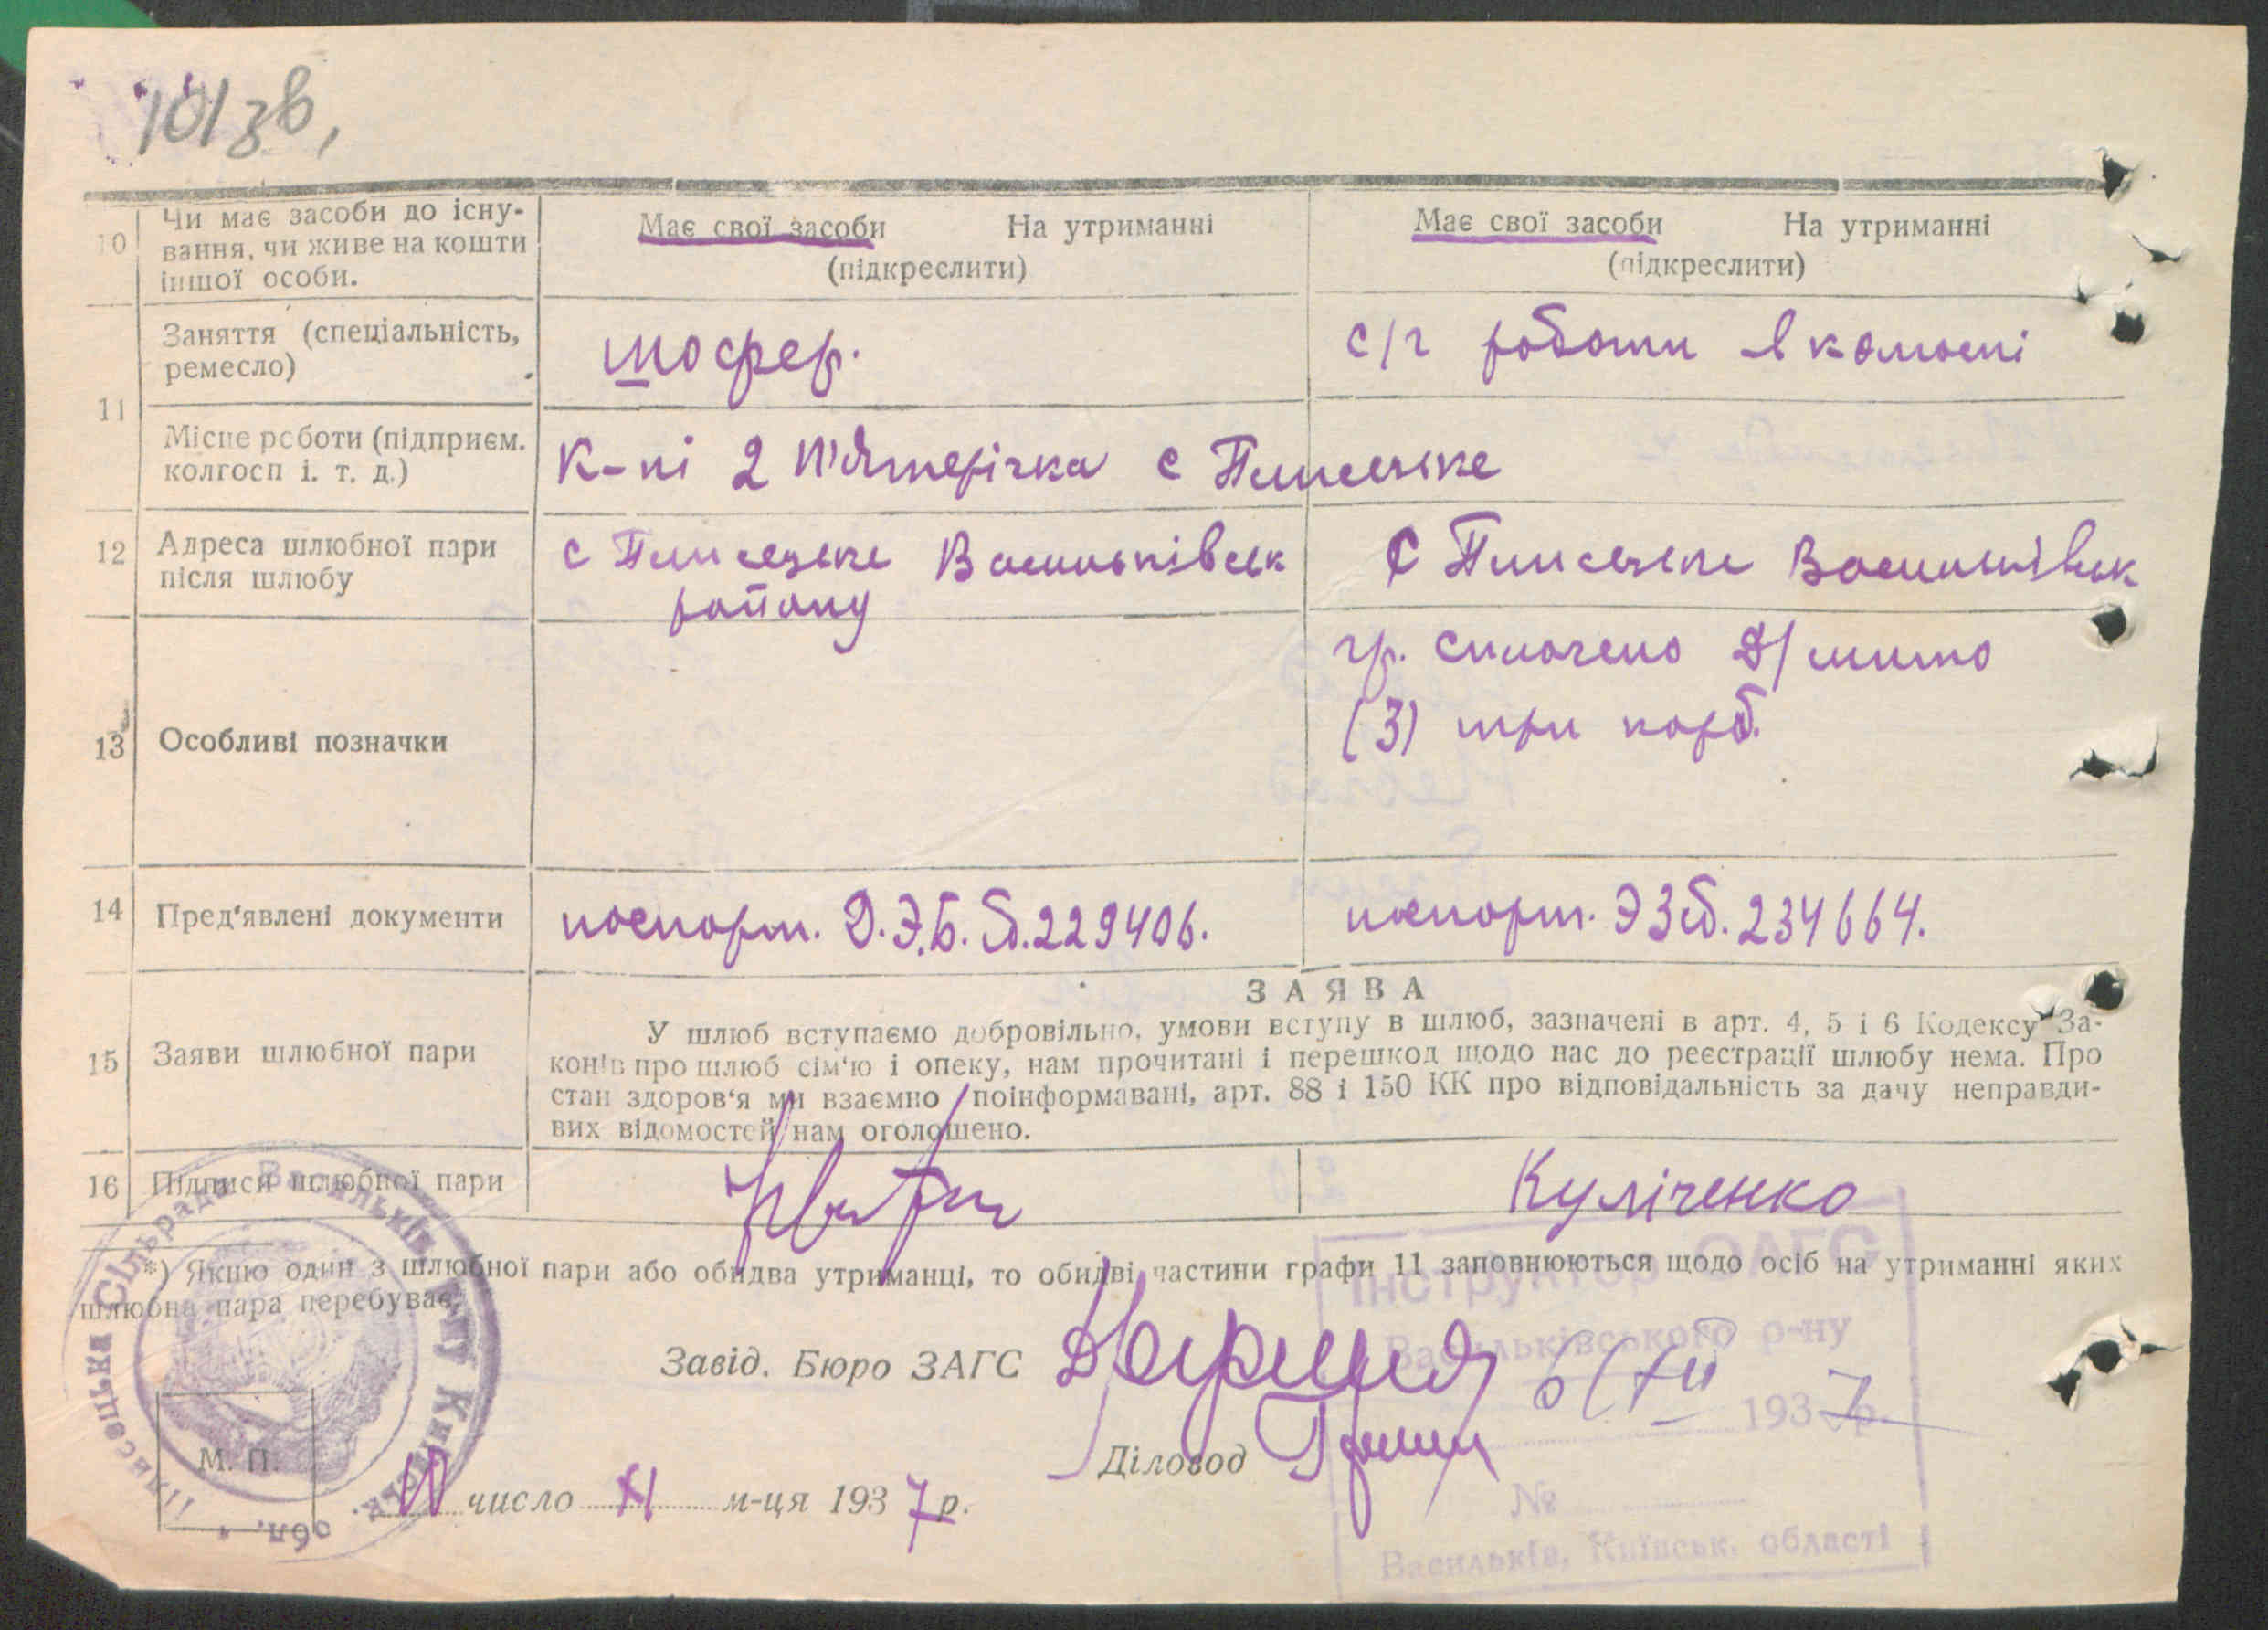 101зв,
10 Чи має засоби до існу-
вання, чи живе на кошти
іншої особи.
Має свої засоби На утриманні
(підкреслити)
Має свої засоби На утриманні
(підкреслити)
11
Заняття (спеціальність,
ремесло)
шофер.
с/г роботи в колгоспі
Місце роботи (підприєм.
колгосп і. т. д.)
К-пі 2 П'ятерічка с Плисецьке
12 Адреса шлюбної пари
після шлюбу
с Плисецьке Васильківськ
району
с Плисецьке Васильківськ
13 Особливі позначки
гр. сплачено д/мито
(3) три карб.
14 Пред'явлені документи
паспорт. 229406.
паспорт. 234664.
15 Заяви шлюбної пари
ЗАЯВА
У шлюб вступаємо добровільно, умови вступу в шлюб, зазначені в арт. 4, 5 і 6 Кодексу За-
конів про шлюб сім'ю і опеку, нам прочитані і перешкод щодо нас до реєстрації шлюбу нема. Про
стан здоров'я ми взаємно поінформавані, арт. 88 і 150 КК про відповідальність за дачу неправди-
вих відомостей нам оголошено.
16 Підписи шлюбної пари
Куліченко
*) Якщо один з шлюбної пари або обидва утриманці, то обидві частини графи 11 заповнюються щодо осіб на утриманні яких
шлюбна пара перебуває.
Завід. Бюро ЗАГС
Діловод
М. П.
число XI м-ця 1937 р.
Плисецька Сільрада Васильків. р-ну Київськ. обл.
Інструктор ЗАГС
Васильківського р-ну
6/XII 1937 р.
№
Васильків, Київськ. області